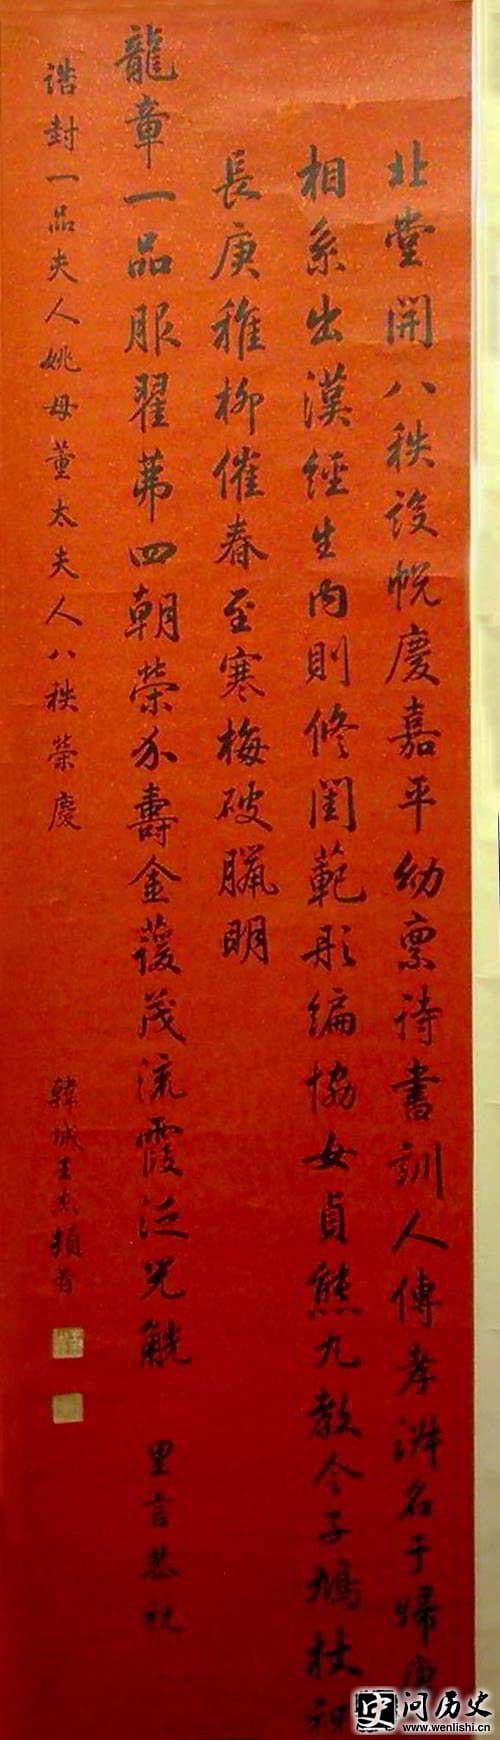 北堂開八秩設帨慶嘉平幼稟詩書訓人傳孝淑名于歸
相系出漢經生內則修閨範彤編協女貞熊丸教令子鳩杖
長庚稚柳催春至寒梅破臘明
龍章一品服翟茀四朝榮介壽金萱茂流霞泛兕觥 里言恭祝
誥封一品夫人姚母董太夫人八秩榮慶
韓城王杰頓首
史问历史
www.wenlishi.cn